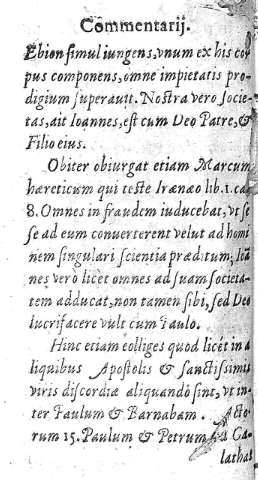 Commentarij.
Ebion simul iungens, vnum ex his cor
pus componens, omne impietatis pro-
digium superauit. Nostra vero socie-
tas, ait Ioannes, est cum Deo Patre, &
Filio eius.
Obiter obiurgat etiam Marcum
hæreticum qui teste Irænæo lib. 1. ca.
8. Omnes in fraudem iuducebat, vt se
se ad eum conuerterent velut ad homi
nem singulari scientia præditum; Ioã
nes vero licet omnes ad suam societa-
tem adducat, non tamen sibi, sed Deo
lucrifacere vult cum Paulo.
Hinc etiam colliges quod licét in a
liquibus Apostolis & sanctissimis
viris discordiæ aliquando sint, vt in-
ter Paulum & Barnabam. Acto
rum 15. Paulum & Petrum Ga
lathas